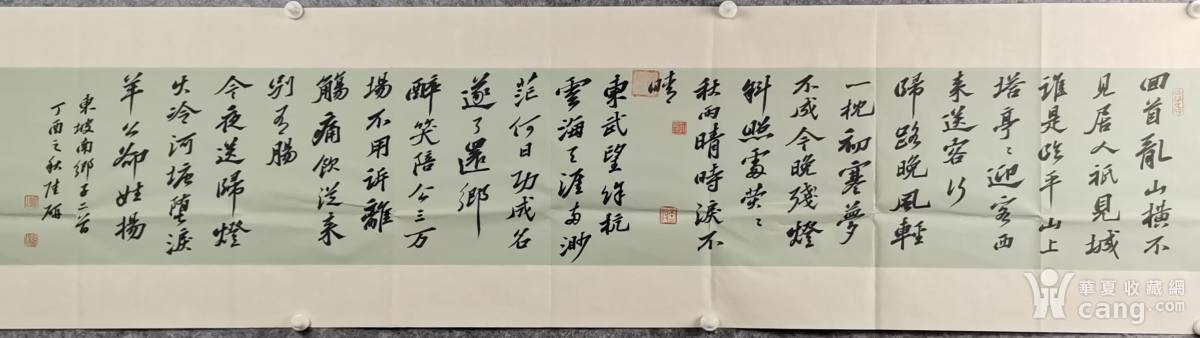 回首亂山橫不
見居人祇見城
誰是臨平山上
塔亭〻迎客西
来送客行
歸路晚風輕
一枕初寒夢
不成今晚殘燈
斜照處熒〻
秋雨晴時淚不
晴
東武望餘杭
雲海天涯兩渺
茫何日功成名
遂了還鄉
醉笑陪公三万
場不用訴離
觴痛飲從来
别有腸
今夜送歸燈
火冷河塘墮淚
羊公卻姓揚
東坡南鄉子二首
丁酉之秋陸
華夏收藏網
cang.com